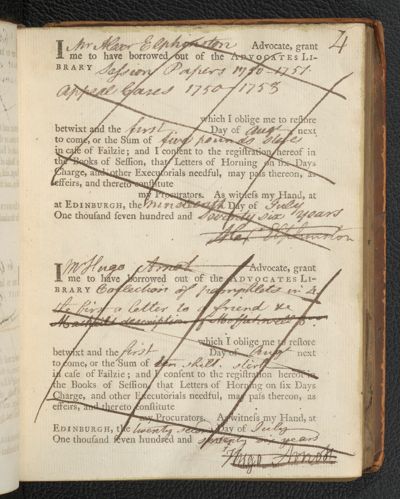 4
I Mr Alexr Elphinston Advocate, grant
me to have borrowed out of the ADVOCATES LI-
BRARY Session Papers 1750-1751.
Appeal Cases 1750/1753
which I oblige me to reſtore
betwixt and the first Day of augt next
to come, or the Sum of five pounds
in caſe of Failzie; and I conſent to the regiſtration hereof in
the Books of Seſſion, that Letters of Horning on ſix Days
Charge, and other Executorials needful, may paſs thereon, as
effeirs, and thereto conſtitute
my Procurators. As witneſs my Hand, at
at EDINBURGH, the Day of July
One thouſand ſeven hundred and Seventy six years
Alexr Elphinston
I Mr Hugo Arnot Advocate, grant
me to have borrowed out of the ADVOCATES LI-
BRARY Collection of pamphlets in 4
the first a letter to a friend &c
description of Moffat well
which I oblige me to reſtore
betwixt and the first Day of Augt next
to come, or the Sum of ten shill. ster
in caſe of Failzie; and I conſent to the regiſtration hereof in
the Books of Seſſion, that Letters of Horning on ſix Days
Charge, and other Executorials needful, may paſs thereon, as
effeirs, and thereto conſtitute
my Procurators. As witneſs my Hand, at
EDINBURGH, the twenty second Day of July
One thouſand ſeven hundred and seventy six years
Hugo Arnot